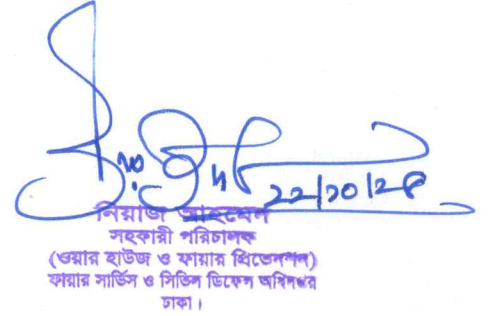 ২২/১০/২৪
নিয়াজ আহমেদ
সহকারী পরিচালক
(ওয়ার হাউজ ও ফায়ার প্রিভেনশন)
ফায়ার সার্ভিস ও সিভিল ডিফেন্স অধিদপ্তর
ঢাকা।